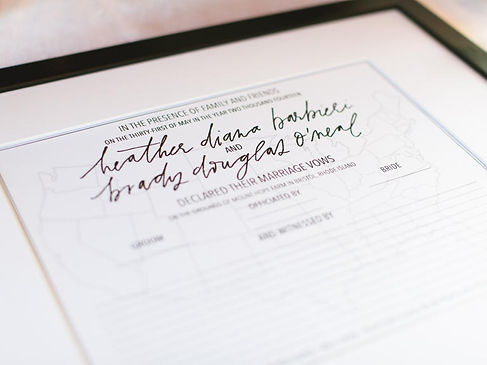 IN THE PRESENCE OF FAMILY AND FRIENDS
ON THE THIRTY FIRST OF MAY IN THE YEAR TWO THOUSAND FOURTEEN
heather diana barbieri
AND
brady douglas o'neal
DECLARED THEIR MARRIAGE VOWS
ON THE GROUNDS OF MOUNT HOPE FARM IN BRISTOL, RHODE ISLAND
OFFICIATED BY
GROOM
BRIDE
AND WITNESSED BY